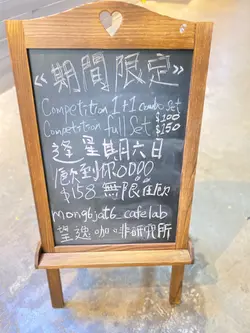 《期間限定》
Competition 1+1 Combo Set $100
Competition full Set $150
逢星期六日
飲到你OOOO
$158 無限任飲
mong6jat6_cafelab
望逸咖啡研究所